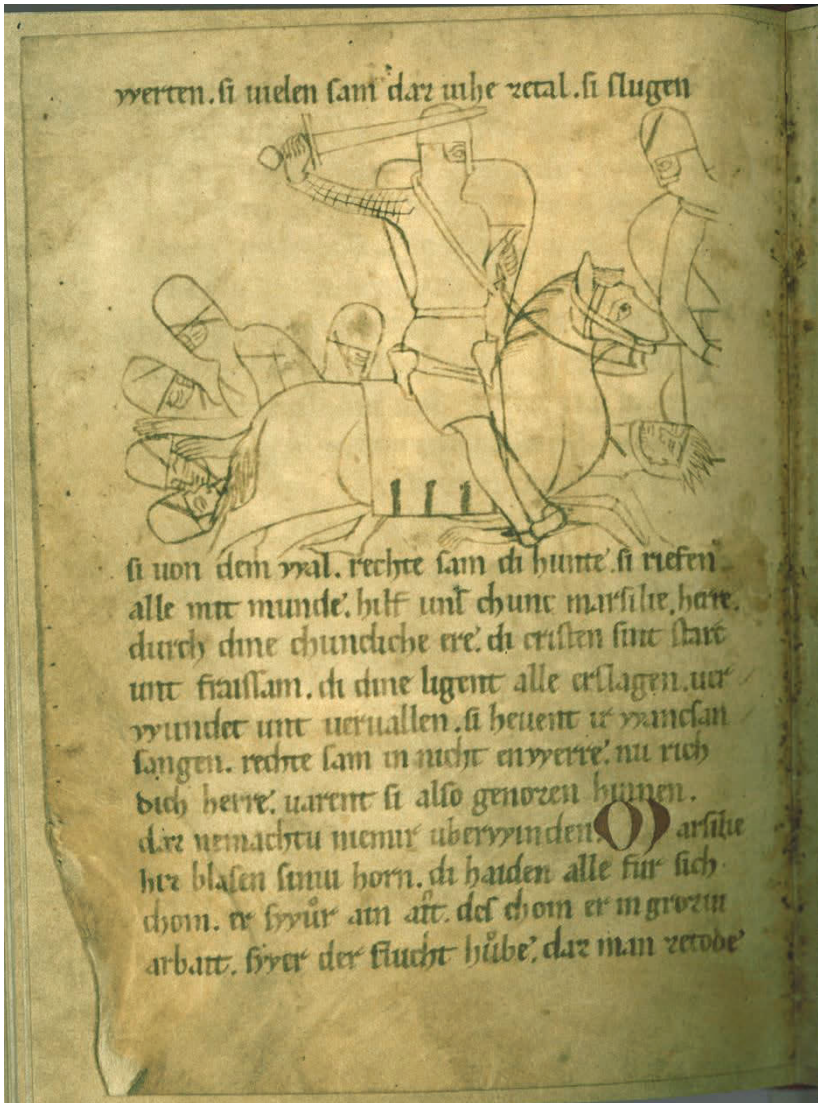 werten. si uielen sam daz uihe zetal. si slugen
si uon dem wal. rechte sam di hunte. si riefen
alle mit munde. hilf uns chunc marsilie, herre.
durch dine chunicliche ere. di cristen sint starc
unt fraissam. di dine ligent alle erslagen. uer
wundet unt ueruallen. si heuent ir wincsan
sangen. rechte sam in nicht enwerre. nu rich
dich herre. uarent si also genozen hinnen.
daz nemachtu niemir uberwinden. Marsilie
hiz blasen siniu horn. di haiden alle fur sich
chom. er swůr ain ait. des chom er in groziu
arbait. swer der flucht hůbe. daz man zetode